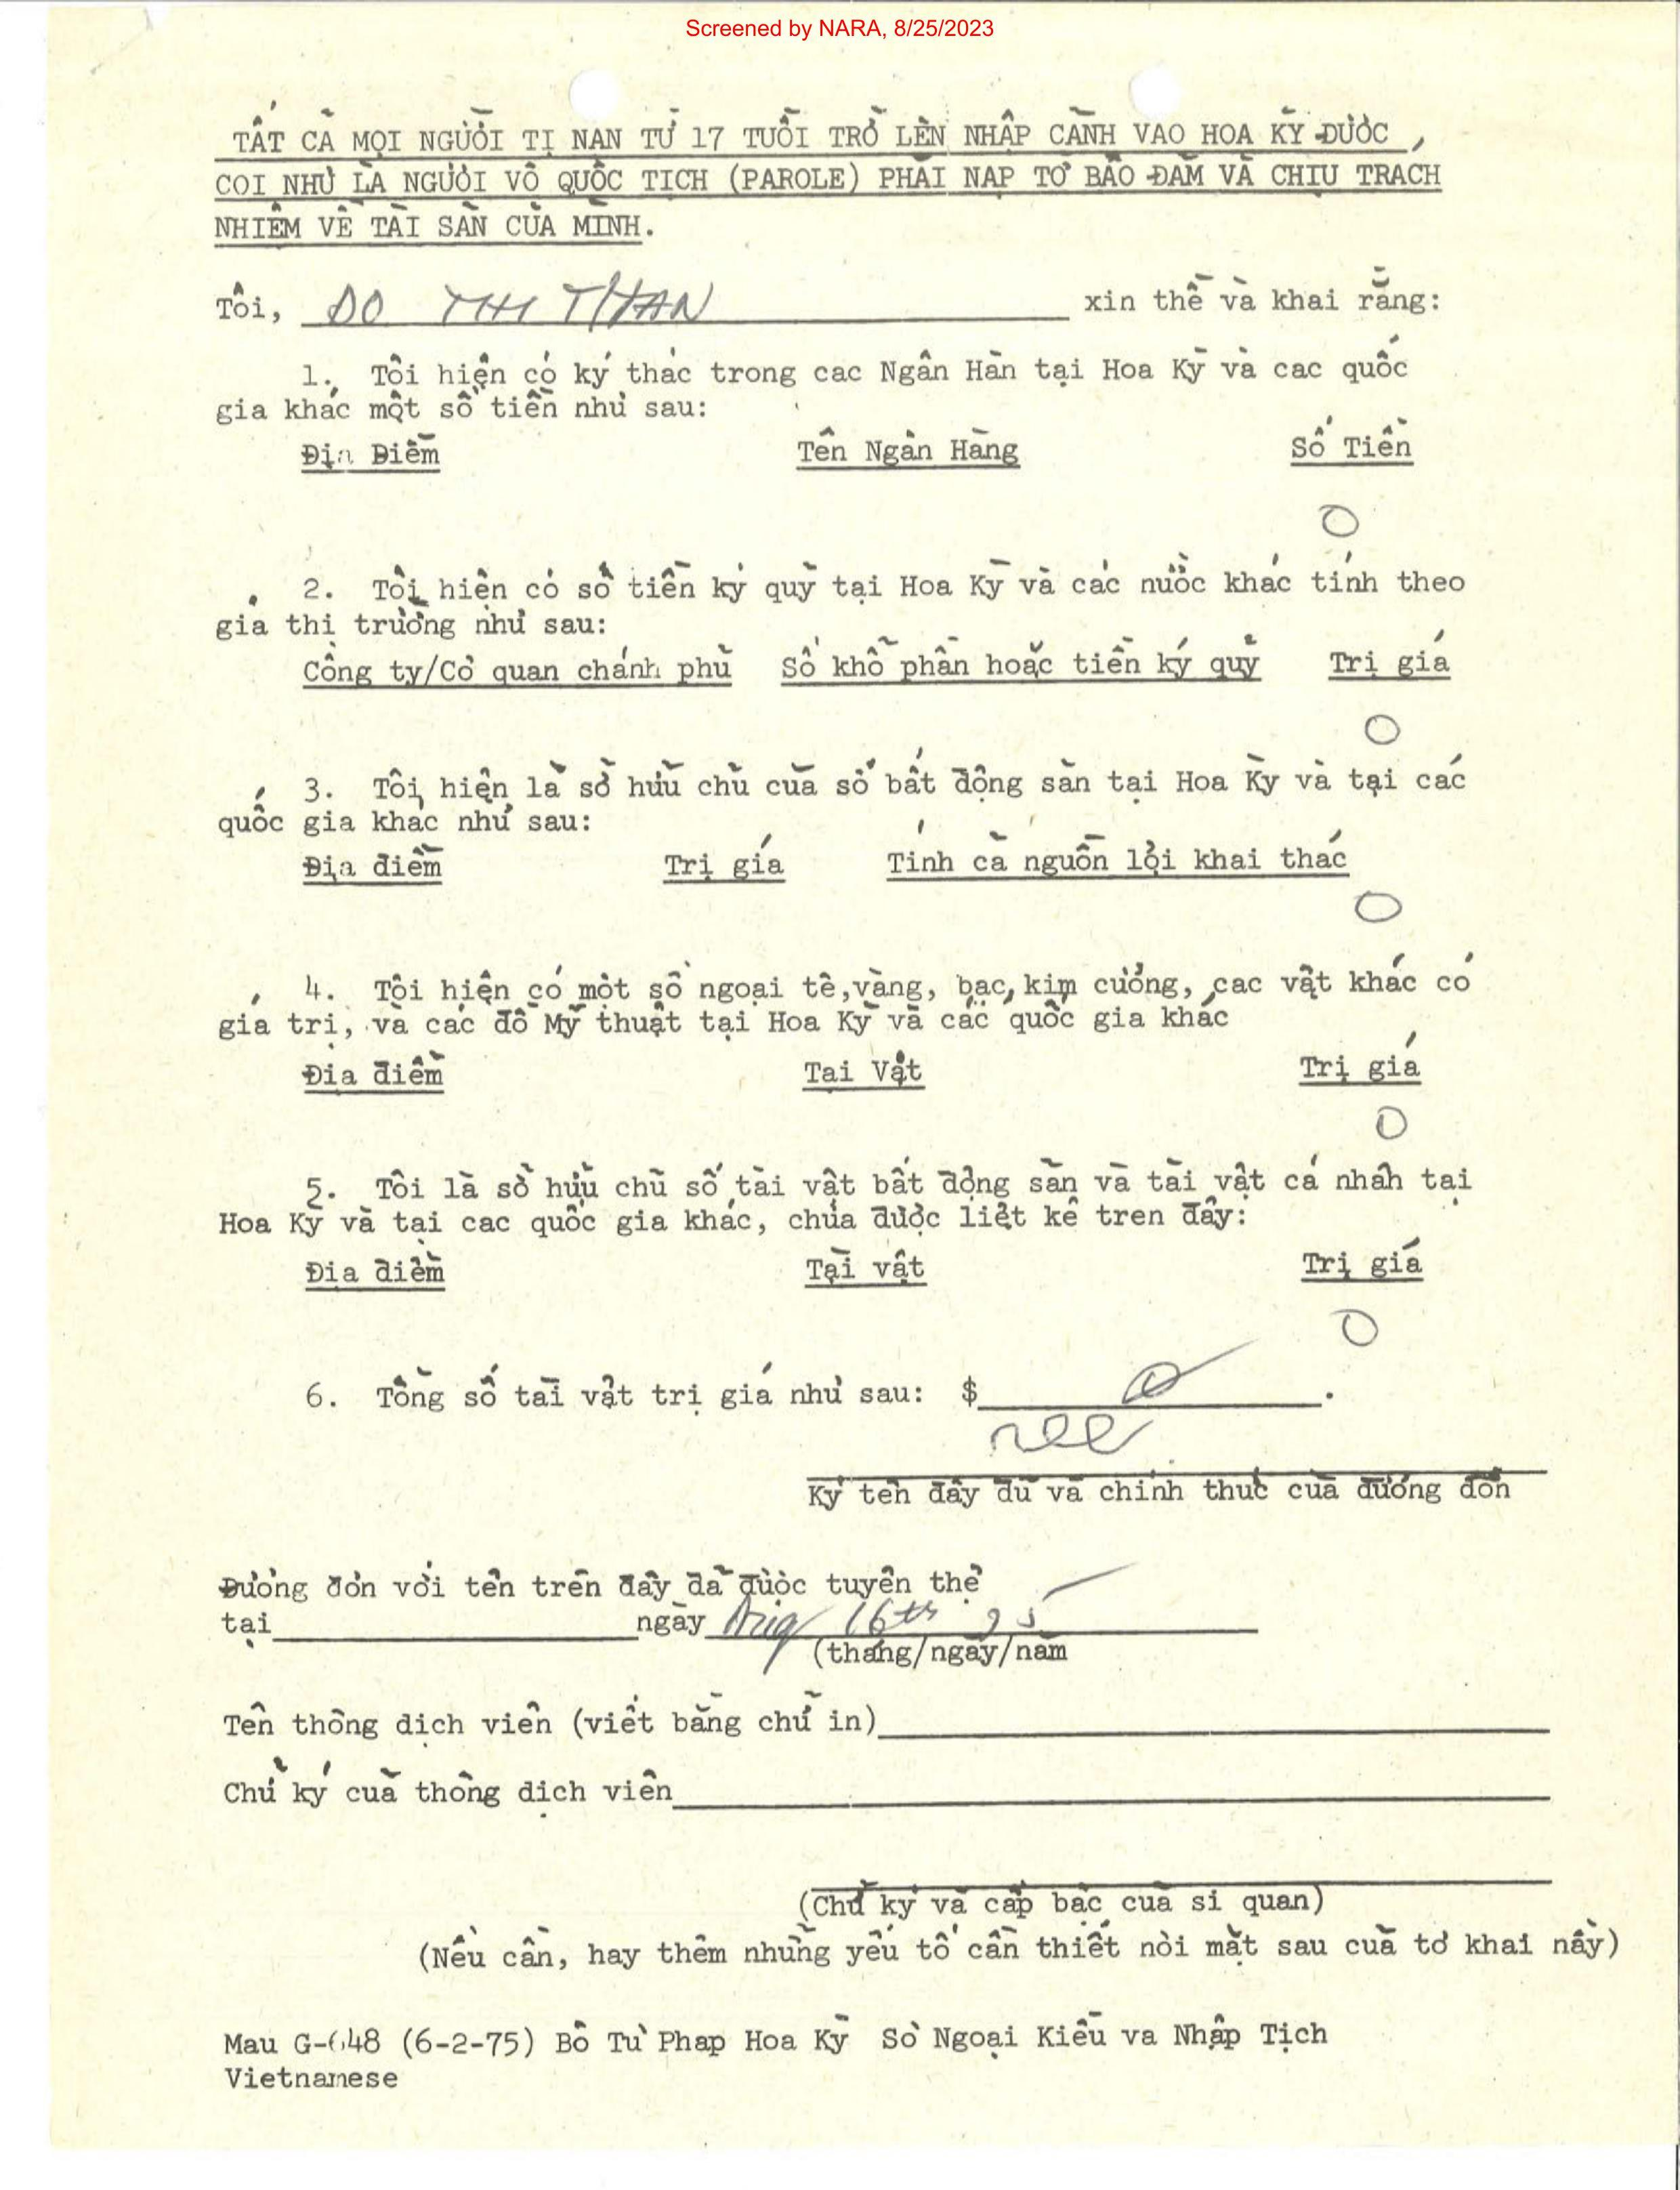 Screened by NARA, 8/25/2023
TẤT CẢ MỌI NGƯỜI TỊ NẠN TỪ 17 TUỔI TRỞ LÊN NHẬP CẢNH VAO HOA KỲ ĐƯỢC
COI NHƯ LÀ NGƯỜI VÔ QUỐC TỊCH (PAROLE) PHẢI NẠP TỜ BẢO ĐẢM VÀ CHỊU TRÁCH
NHIỆM VỀ TÀI SẢN CỦA MÌNH.
Tôi, DO THI THAN xin thề và khai rằng:
1. Tôi hiện có ký thác trong cac Ngân Hàn tại Hoa Kỳ và cac quốc
gia khác một số tiền như sau:
Địa Điểm Tên Ngân Hàng Số Tiền
O
2. Tôi hiện có số tiền ký quỹ tại Hoa Kỳ và các nước khác tính theo
giá thị trường như sau:
Công ty/Cơ quan chánh phủ Số khổ phần hoặc tiền ký quỹ Trị giá
O
3. Tôi hiện là sở hữu chủ của số bất động sản tại Hoa Kỳ và tại các
quốc gia khac như sau:
Địa điểm Trị giá Tính cả nguồn lợi khai thác
O
4. Tôi hiện có một số ngoại tê,vàng, bạc, kim cương, các vật khác có
giá trị, và các đồ Mỹ thuật tại Hoa Kỳ và các quốc gia khác
Địa điểm Tai Vật Trị giá
O
5. Tôi là sở hữu chủ số tài vật bất động sản và tài vật cá nhân tại
Hoa Kỳ và tại cac quốc gia khác, chưa được liệt kê tren đây:
Địa điểm Tài vật Trị giá
O
6. Tổng số tài vật trị giá như sau: $ O .
Ký tên đầy đủ và chính thức của đương đơn
Đương đơn với tên trên đây đã được tuyên thệ
tại ngày Aug 16th 75
(tháng/ngày/năm
Tên thông dịch viên (viết bằng chữ in)
Chữ ký của thông dịch viên
(Chữ ký và cấp bậc của si quan)
(Nếu cần, hay thêm những yếu tố cần thiết nơi mặt sau của tờ khai nầy)
Mau G-648 (6-2-75) Bô Tư Phap Hoa Kỳ Sở Ngoại Kiều va Nhập Tịch
Vietnamese